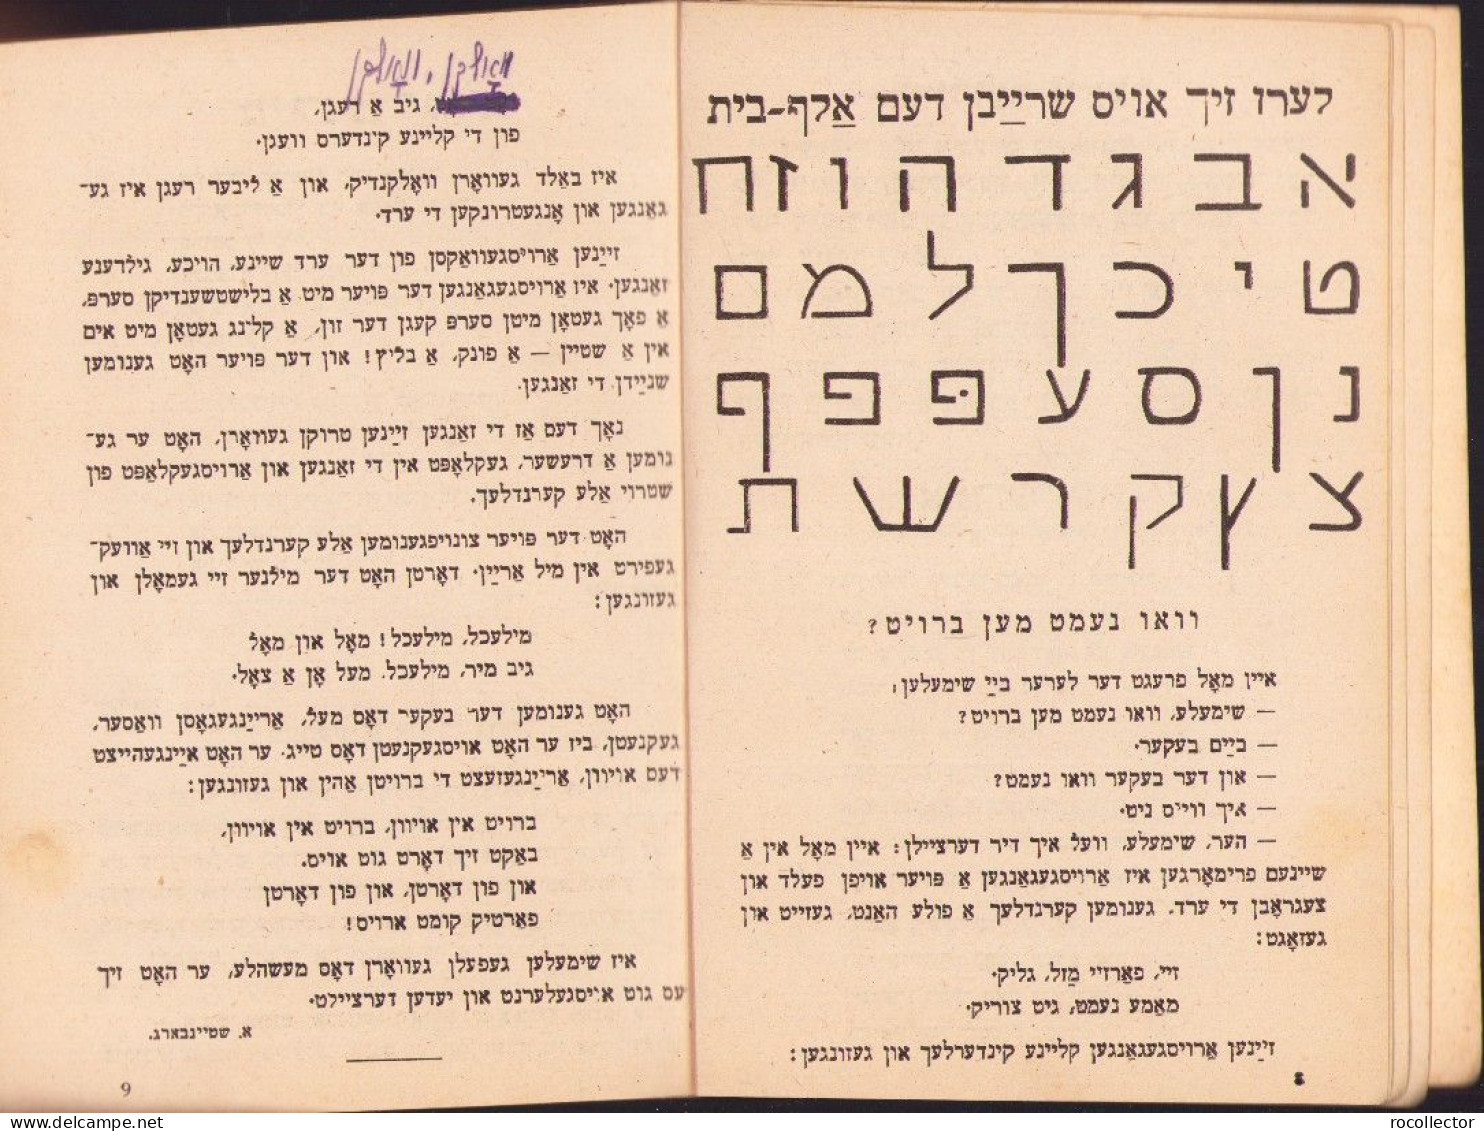 לערז זיך אויס שרייַבן דעם אַלף-בית
א ב ג ד ה ו ז ח
ט י כ ך ל מ ם
נ ן ס ע פּ פ ף
צ ץ ק ר ש ת
וואו נעמט מען ברויט?
איין מאָל פרעגט דער לערער בייַ שימעלען:
— שימעלע, וואו נעמט מען ברויט?
— בייַם בעקער.
— און דער בעקער וואו נעמט?
— איך ווייס ניט.
— הער, שימעלע, וועל איך דיר דערציילן: איין מאָל אין אַ
שיינעם פרימאָרגען איז אַרויסגעגאַנגען אַ פּויער אויפן פעלד און
צעגראָבן די ערד. גענומען קערנדלעך אַ פולע האַנט, געזייט און
געזאָגט:
זיי, פאַרזיי מַזל, גליק.
מאַמע נעמט, גיט צוריק.
זייַנען אַרויסגעגאַנגען קליינע קינדערלעך און געזונגען:
8
וואָלקן, וואָלקן
גיב אַ רעגן,
פון די קליינע קינדערס וועגן.
איז באַלד געוואָרן וואָלקנדיק, און אַ ליבער רעגן איז גע־
גאַנגען און אָנגעטרונקען די ערד.
זייַנען אַרויסגעוואַקסן פון דער ערד שיינע, הויכע, גילדענע
זאַנגען. איז אַרויסגעגאַנגען דער פּויער מיט אַ בלישטשענדיקן סערפּ,
אַ פאָך געטאָן מיטן סערפּ קעגן דער זון, אַ קלונג געטאָן מיט אים
אין אַ שטיין — אַ פונק, אַ בליץ! און דער פּויער האָט גענומען
שנייַדן די זאַנגען.
נאָך דעם אַז די זאַנגען זייַנען טרוקן געוואָרן, האָט ער גע־
נומען אַ דרעשער, געקלאָפּט אין די זאַנגען און אַרויסגעקלאַפּט פון
שטרוי אַלע קערנדלעך.
האָט דער פּויער צונויפגענומען אַלע קערנדלעך און זיי אַוועק־
געפירט אין מיל אַרייַן. דאָרטן האָט דער מילנער זיי געמאָלן און
געזונגען:
מילעכל, מילעכל! מאָל און מאָל
גיב מיר, מילעכל, מעל אָן אַ צאָל.
האָט גענומען דער בעקער דאָס מעל, אַרייַנגעגאָסן וואַסער,
געקנעטן, ביז ער האָט אויסגעקנעטן דאָס טייג. ער האָט אייַנגעהייצט
דעם אויוון, אַרייַנגעזעצט די ברויטן אַהין און געזונגען:
ברויט אין אויוון, ברויט אין אויוון,
באַקט זיך דאָרט גוט אויס.
און פון דאָרטן, און פון דאָרטן
פאַרטיק קומט ארויס!
איז שימעלען געפעלן געוואָרן דאָס מעשהלע, ער האָט זיך
עס גוט אויסגעלערנט און יעדען דערציילט.
א. שטיינבאַרג.
9
delcampe.net
rocollector